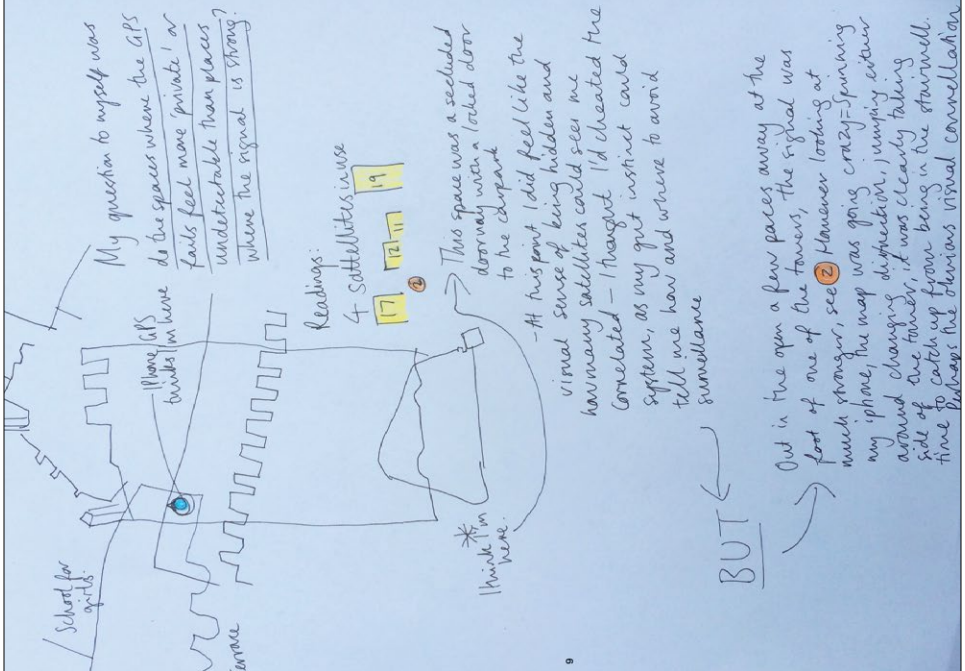 School for
girls.
errace
iPhone GPS
thinks I'm here
My question to myself was
do the spaces where the GPS
fails feel more 'private' or
undetectable than places
where the signal is strong?
Readings:
4 sattellites in use
17 12 11 19
2
I think I'm
here.
This space was a secluded
doorway with a locked door
to the carpark
- At this point I did feel like the
visual sense of being hidden and
how many satellites could see me
correlated – I thought I'd cheated the
system, as my gut instinct could
tell me how and where to avoid
surveillance
BUT
Out in the open a few paces away at the
foot of one of the towers, the signal was
much stronger, see 2 However looking at
my iphone, the map was going crazy = spinning
around changing direction, jumping either
side of the tower, it was clearly taking
time to catch up from being in the stairwell.
Perhaps the obvious visual connellation
9